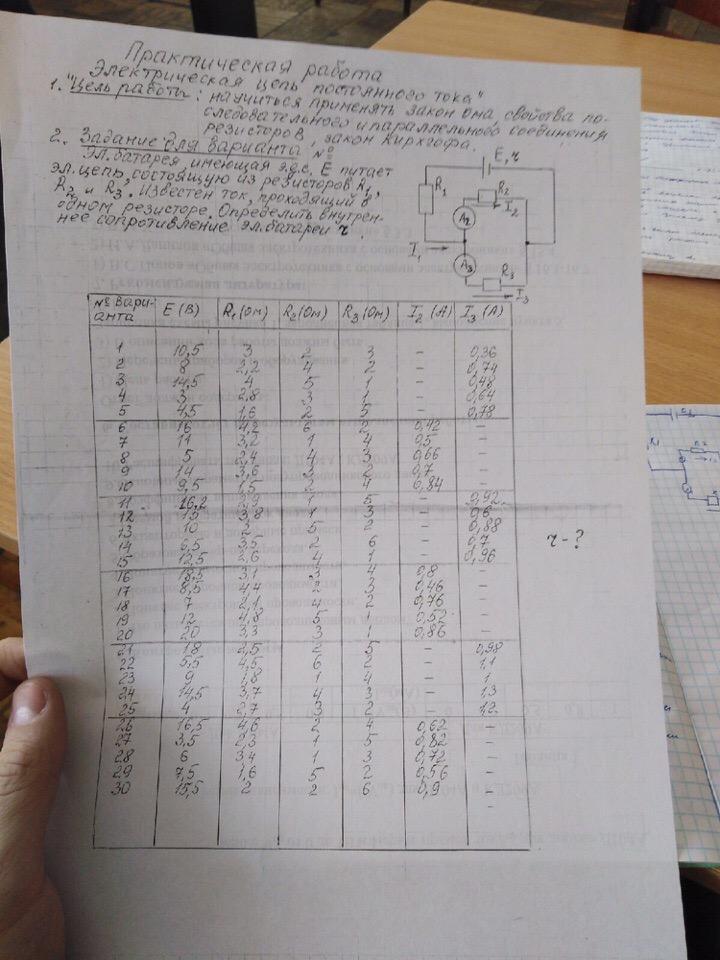 Практическая работа
Электрическая цепь постоянного тока"
1. "Цель работы: научиться применять закон ома, свойства по-
следовательного и параллельного соединения
резисторов, закон Кирхгофа.
2. Задание для варианта №
Эл. батарея, имеющая э.д.с. E питает
эл. цепь, состоящую из резисторов R1,
R2 и R3. Известен ток, проходящий в
одном резисторе. Определить внутрен-
нее сопротивление эл. батареи r.
E, r
R1
R2
A2
I2
I1
A3
R3
I3
№ Вари-анта E (В) R1 (Ом) R2 (Ом) R3 (Ом) I2 (А) I3 (А)
1 10,5 3 2 3 - 0,36
2 8 2,2 4 2 - 0,74
3 14,5 4 5 1 - 0,48
4 3 2,8 3 1 - 0,64
5 4,5 1,6 2 5 - 0,78
6 16 4,2 6 2 0,42 -
7 11 3,2 1 4 0,5 -
8 5 2,4 4 3 0,66 -
9 14 3,6 3 2 0,7 -
10 9,5 1,5 2 4 0,84 -
11 16,2 2,9 1 5 - 0,92
12 15 3,8 1 3 - 0,6
13 10 2 5 2 - 0,88
14 6,5 3,5 2 6 - 0,7
15 12,5 2,6 4 1 - 0,96
16 18,5 3,1 3 4 0,8 -
17 8,5 4,4 2 3 0,46 -
18 7 2,1 4 2 0,76 -
19 12 4,8 5 1 0,52 -
20 20 3,3 3 1 0,86 -
21 18 2,5 2 5 - 0,98
22 5,5 4,5 6 2 - 1,1
23 9 1,8 1 4 - 1
24 14,5 3,7 4 3 - 1,3
25 4 2,7 3 2 - 1,2
26 16,5 4,6 2 4 0,62 -
27 3,5 2,3 1 5 0,82 -
28 6 3,4 1 3 0,72 -
29 7,5 1,6 5 2 0,56 -
30 15,5 2 2 6 0,9 -
-
r - ?